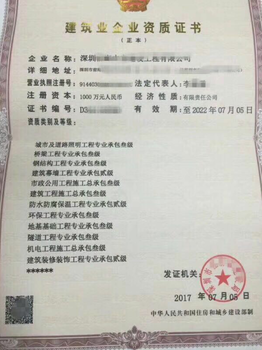 建筑业企业资质证书
（正本）
企业名称：深圳 工程有限公司
详细地址：
营业执照注册号：91440 法定代表人：李
注册资本：1000万元人民币 经济性质：有限责任公司
证书编号：D3 有效期：至2022年07月05日
资质类别及等级：
城市及道路照明工程专业承包叁级
桥梁工程专业承包叁级
钢结构工程专业承包叁级
建筑幕墙工程专业承包贰级
市政公用工程施工总承包叁级
建筑工程施工总承包叁级
防水防腐保温工程专业承包贰级
环保工程专业承包叁级
地基基础工程专业承包叁级
隧道工程专业承包叁级
机电工程施工总承包叁级
建筑装修装饰工程专业承包贰级
******
发证机关：
2017年07月05日
中华人民共和国住房和城乡建设部制